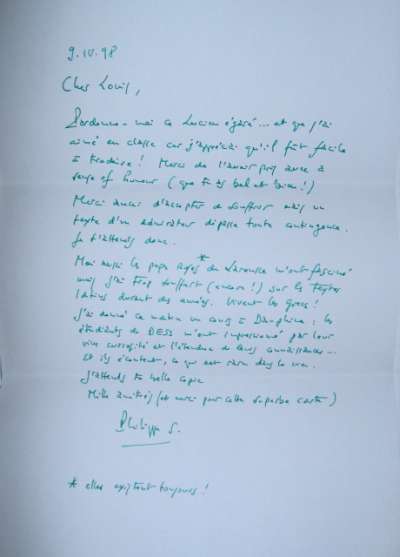 9.IV.98
Cher Louis,
Pardonne-moi ce Lucien égaré... et que j'ai
aimé en classe car j'appréciais qu'il fût facile
à traduire ! Merci de l'avoir pris avec
sense of humour (que tu as bel et bien !)
Merci aussi d'accepter de souffrir mais un
texte d'un admirateur dépasse toute contingence.
Je t'attends donc.
Moi aussi les pages roses* de Larousse m'ont fasciné
mais j'ai trop souffert (encore !) sur les textes
latins durant des années. Vivent les Grecs !
J'ai donné ce matin un cours à Dauphine : les
étudiants de DESS m'ont impressionné par leur
vive curiosité et l'étendue de leurs connaissances...
Et ils écoutent, ce qui est rare dans la vie.
J'attends ta belle copie
Mille amitiés (et merci pour cette superbe carte)
Philippe S.
* elles existent toujours !